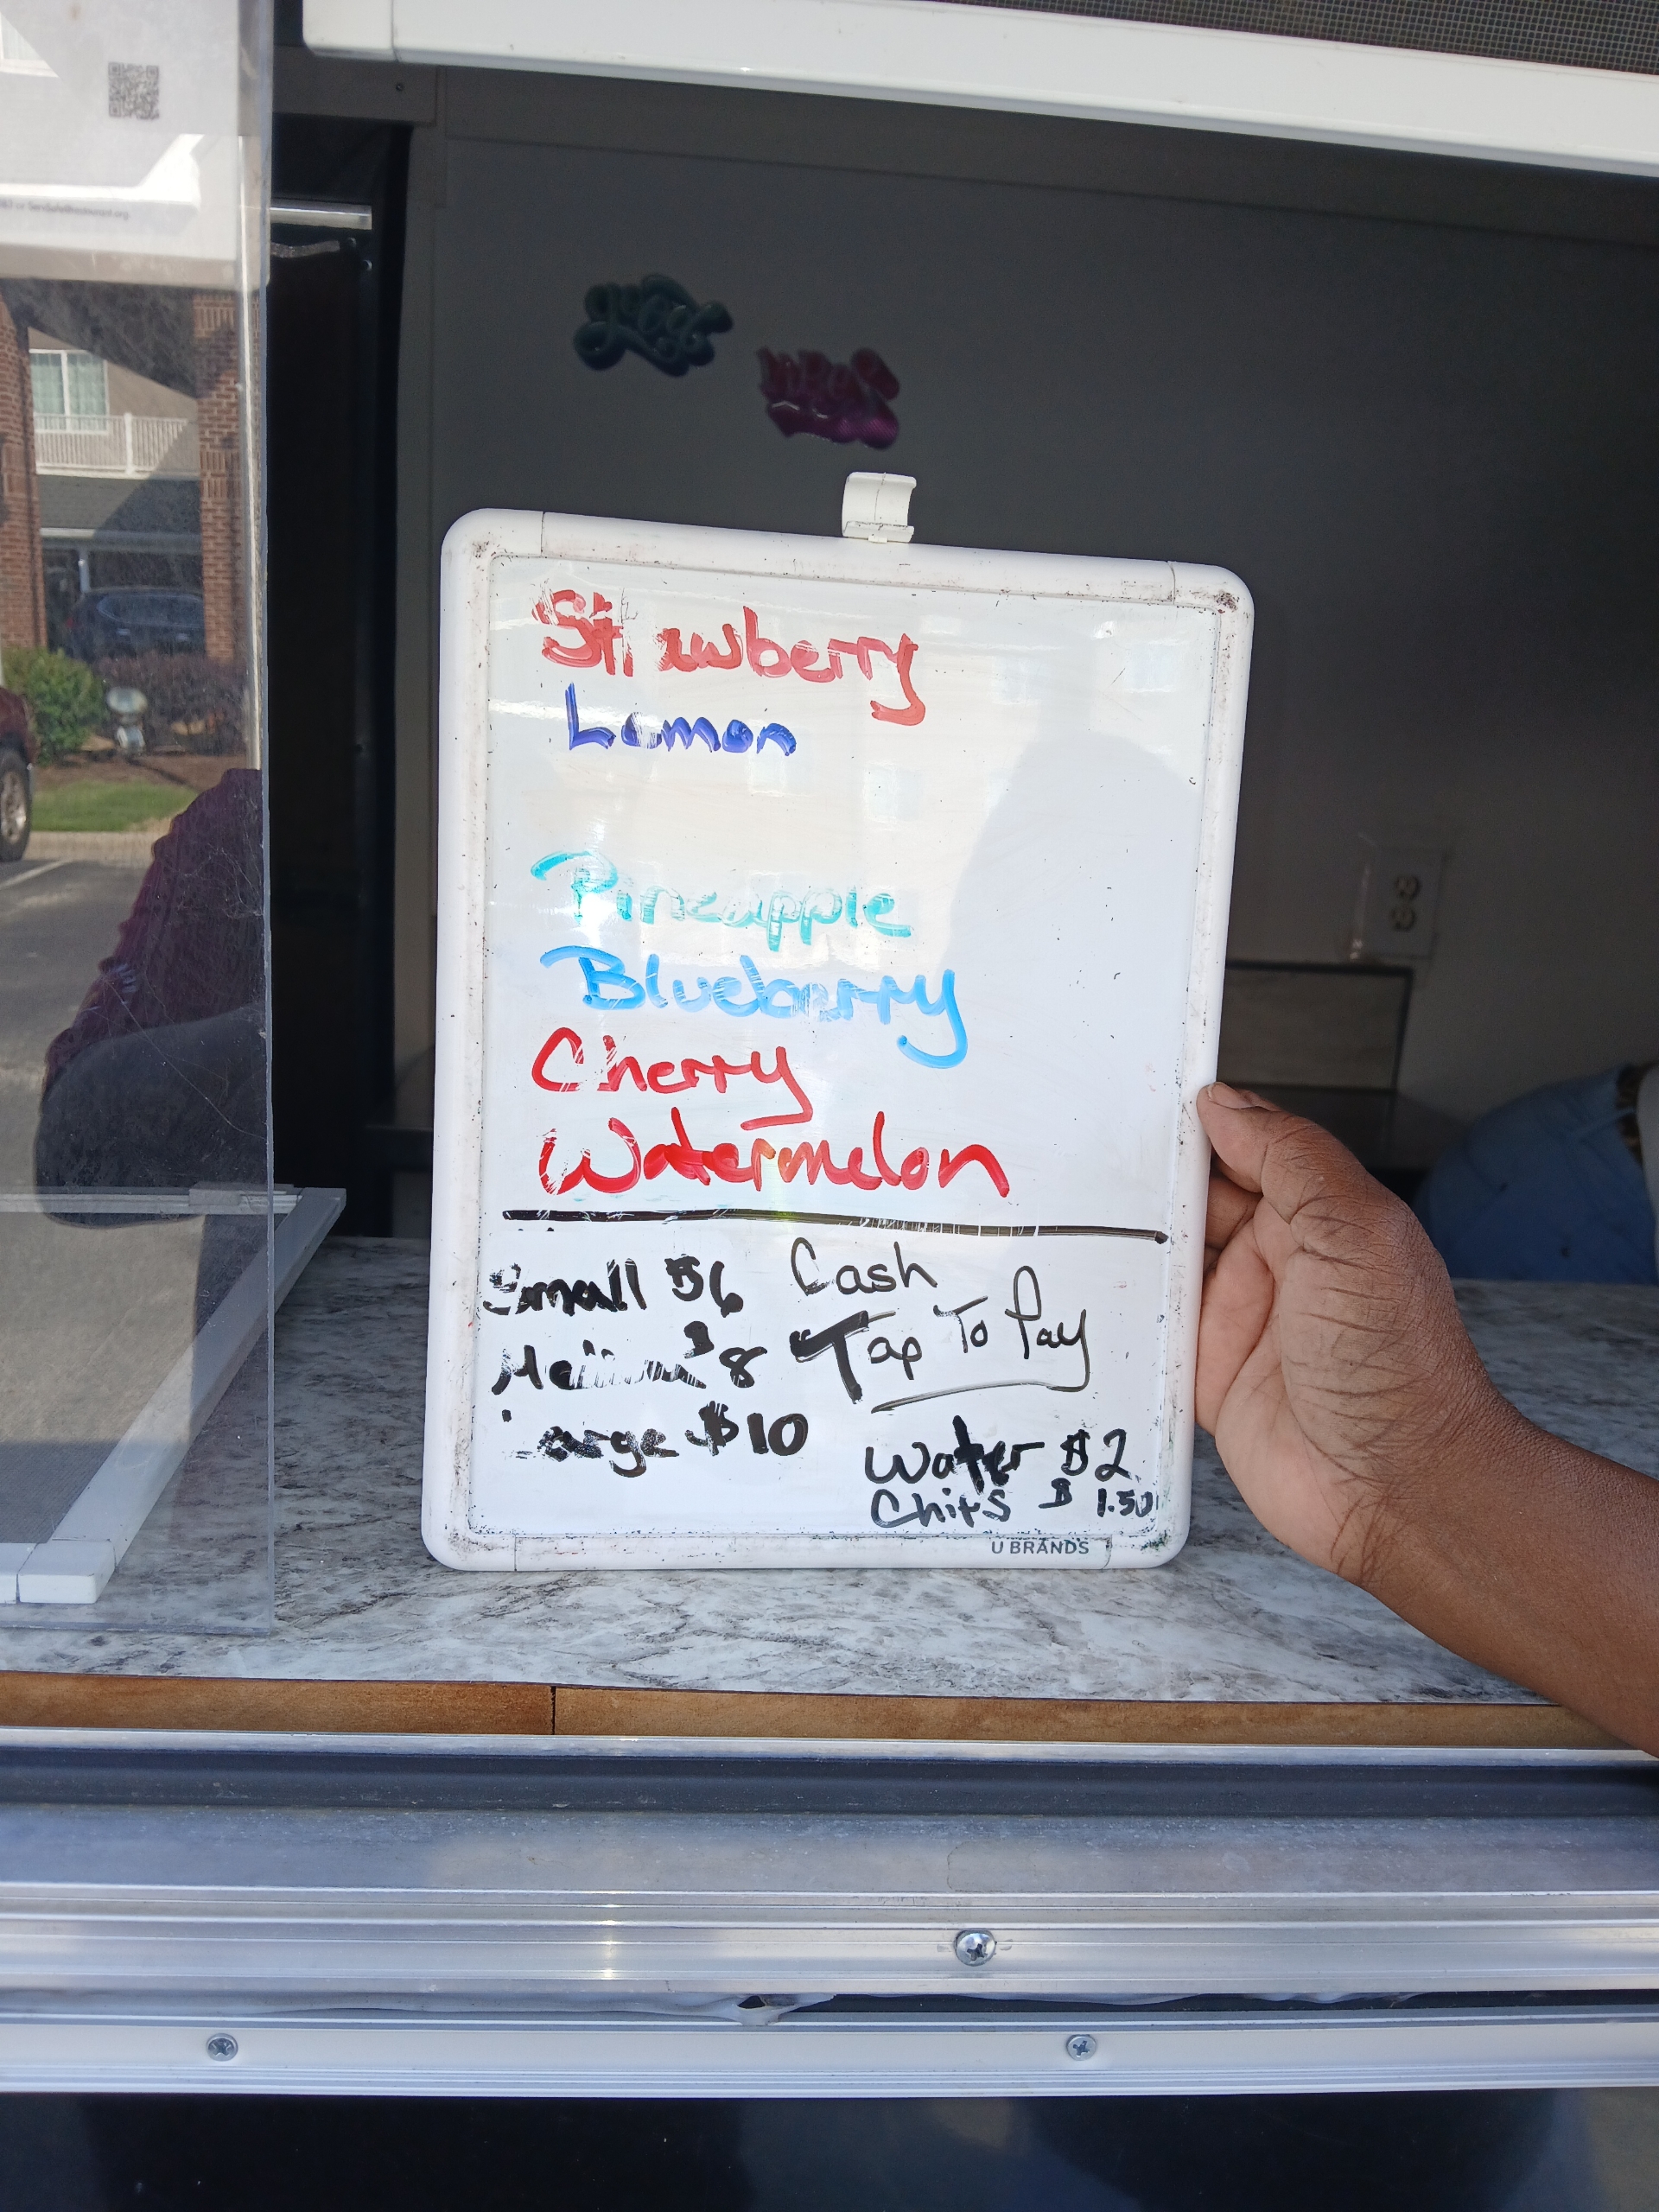 good
vibes
Strawberry
Lemon
Pineapple
Blueberry
Cherry
Watermelon
Small $6 Cash
Medium $8 Tap To Pay
Large $10
Water $2
Chips $1.50
U BRANDS